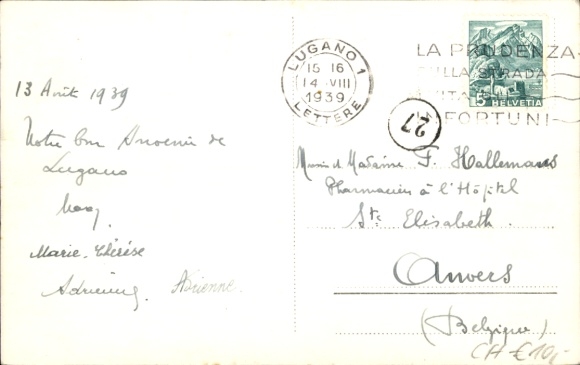 13 Août 1939
Notre bon Souvenir de
Lugano
Marie-Thérèse
Adrienne. Adrienne.
LUGANO 1
15 16
14.VIII
1939
LETTERE
LA PRUDENZA
SULLA STRADA
INFORTUNI
5 HELVETIA
27
Monsieur et Madame F. Hallemans
Pharmacien à l'Hôpital
Ste Elisabeth.
Anvers
(Belgique)
CH €10,-